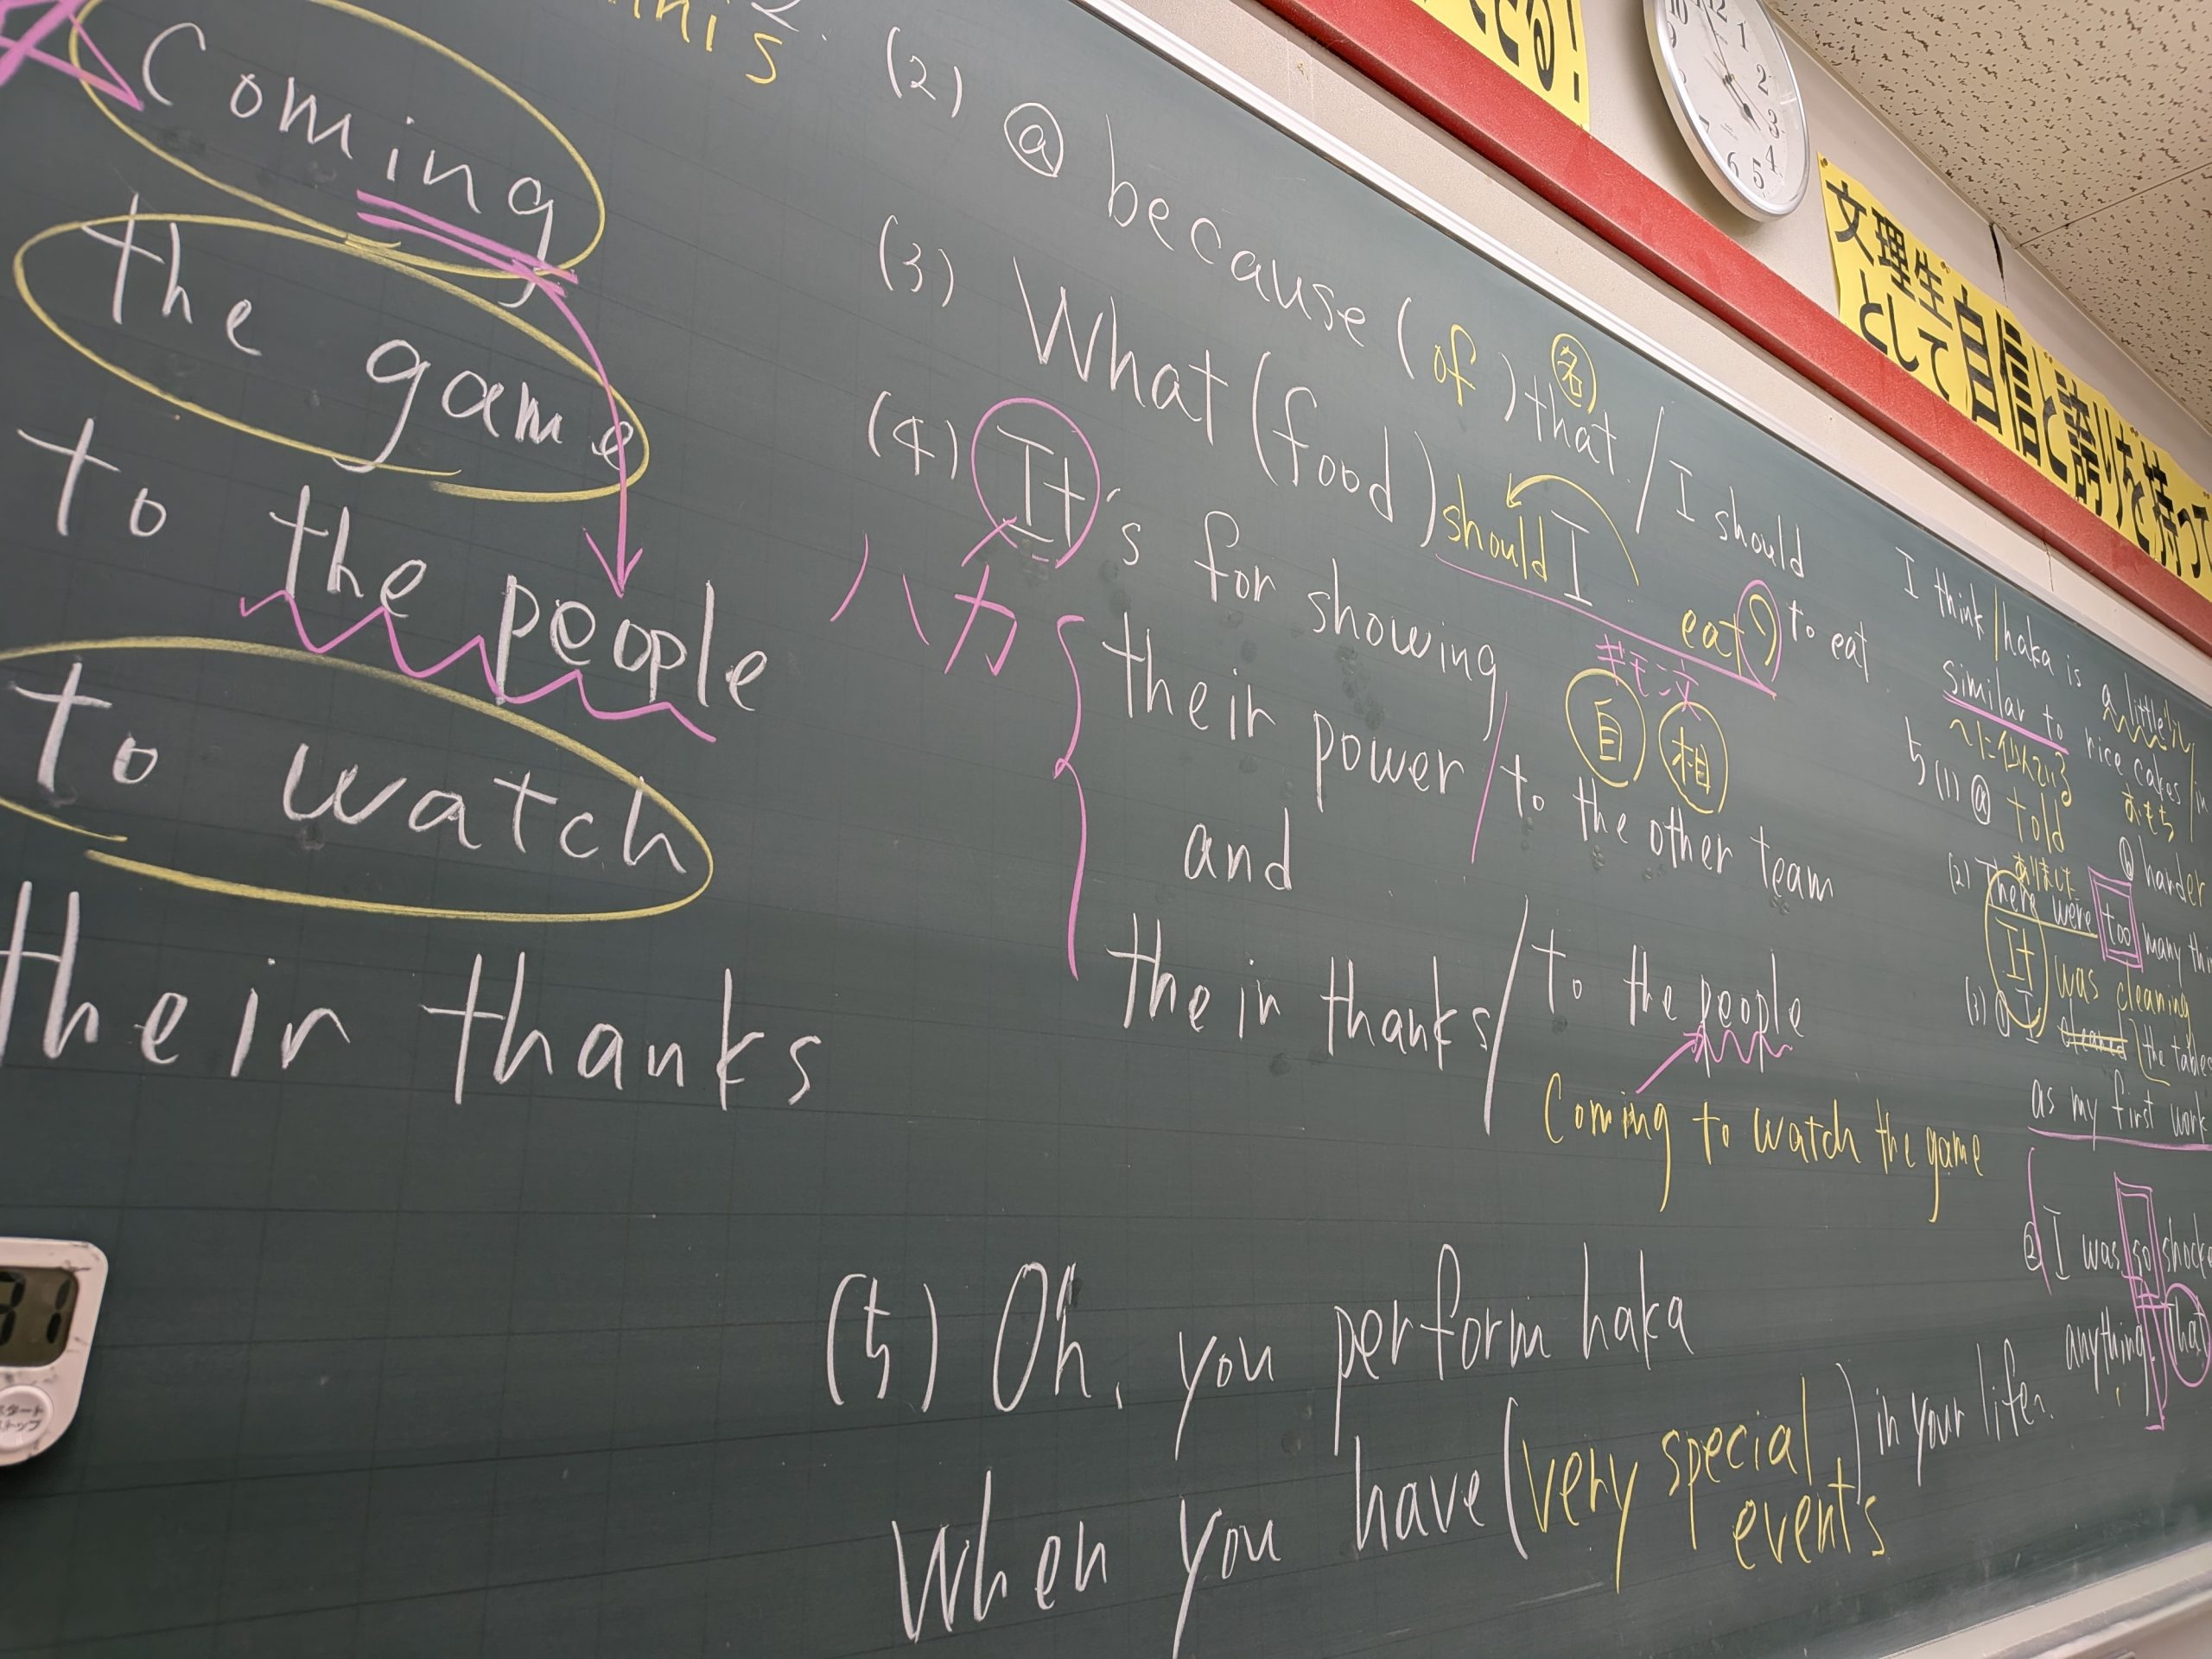 Coming
the game
to the people
to watch
their thanks
(2) ⓐ because (of) that / I should
名
(3) What (food) should I eat? to eat
(4) It's for showing
ハカ
their power / to the other team
and
their thanks / to the people
Coming to watch the game
自 相
(5) Oh, you perform haka
When you have (very special events) in your life.
I think / haka is a little
similar to rice cakes / in
〜に似ている おもち
5 (1) ⓐ told
ⓑ harder
ありました
(2) There were too many
It was cleaning
(3) ① I cleaned the tables
as my first work
② I was so
anything. that
文理生
として自信と誇りを持っ
スタート
ストップ
31
12
1
2
3
4
5
6
10